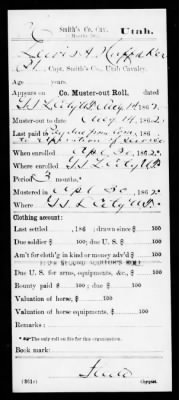 Smith's Co. Cav. Utah.
Months 1862
Lewis A. Huffaker
Pt., Capt. Smith's Co., Utah Cavalry.
Age years.
Appears on Co. Muster-out Roll, dated
S L City U.T. Aug 14, 1862.
Muster-out to date Aug 14, 1862.
Last paid to
to expiration of service
When enrolled Apl 30, 1862.
Where enrolled S L City U.T.
Period 3 months.*
Mustered in Apl 30, 1862.
Where S L City U.T.
Clothing account:
Last settled , 186 ; drawn since $ 100
Due soldier $ 100; due U. S. $ 100
Am't for cloth'g in kind or money adv'd $ 100
Due U. S. for arms, equipments, &c., $ 100
Bounty paid $ 100; due $ 100
Valuation of horse, $ 100
Valuation of horse equipments, $ 100
Remarks :
*The only roll on file for this organization.
Book mark:
(361c) Copyist.